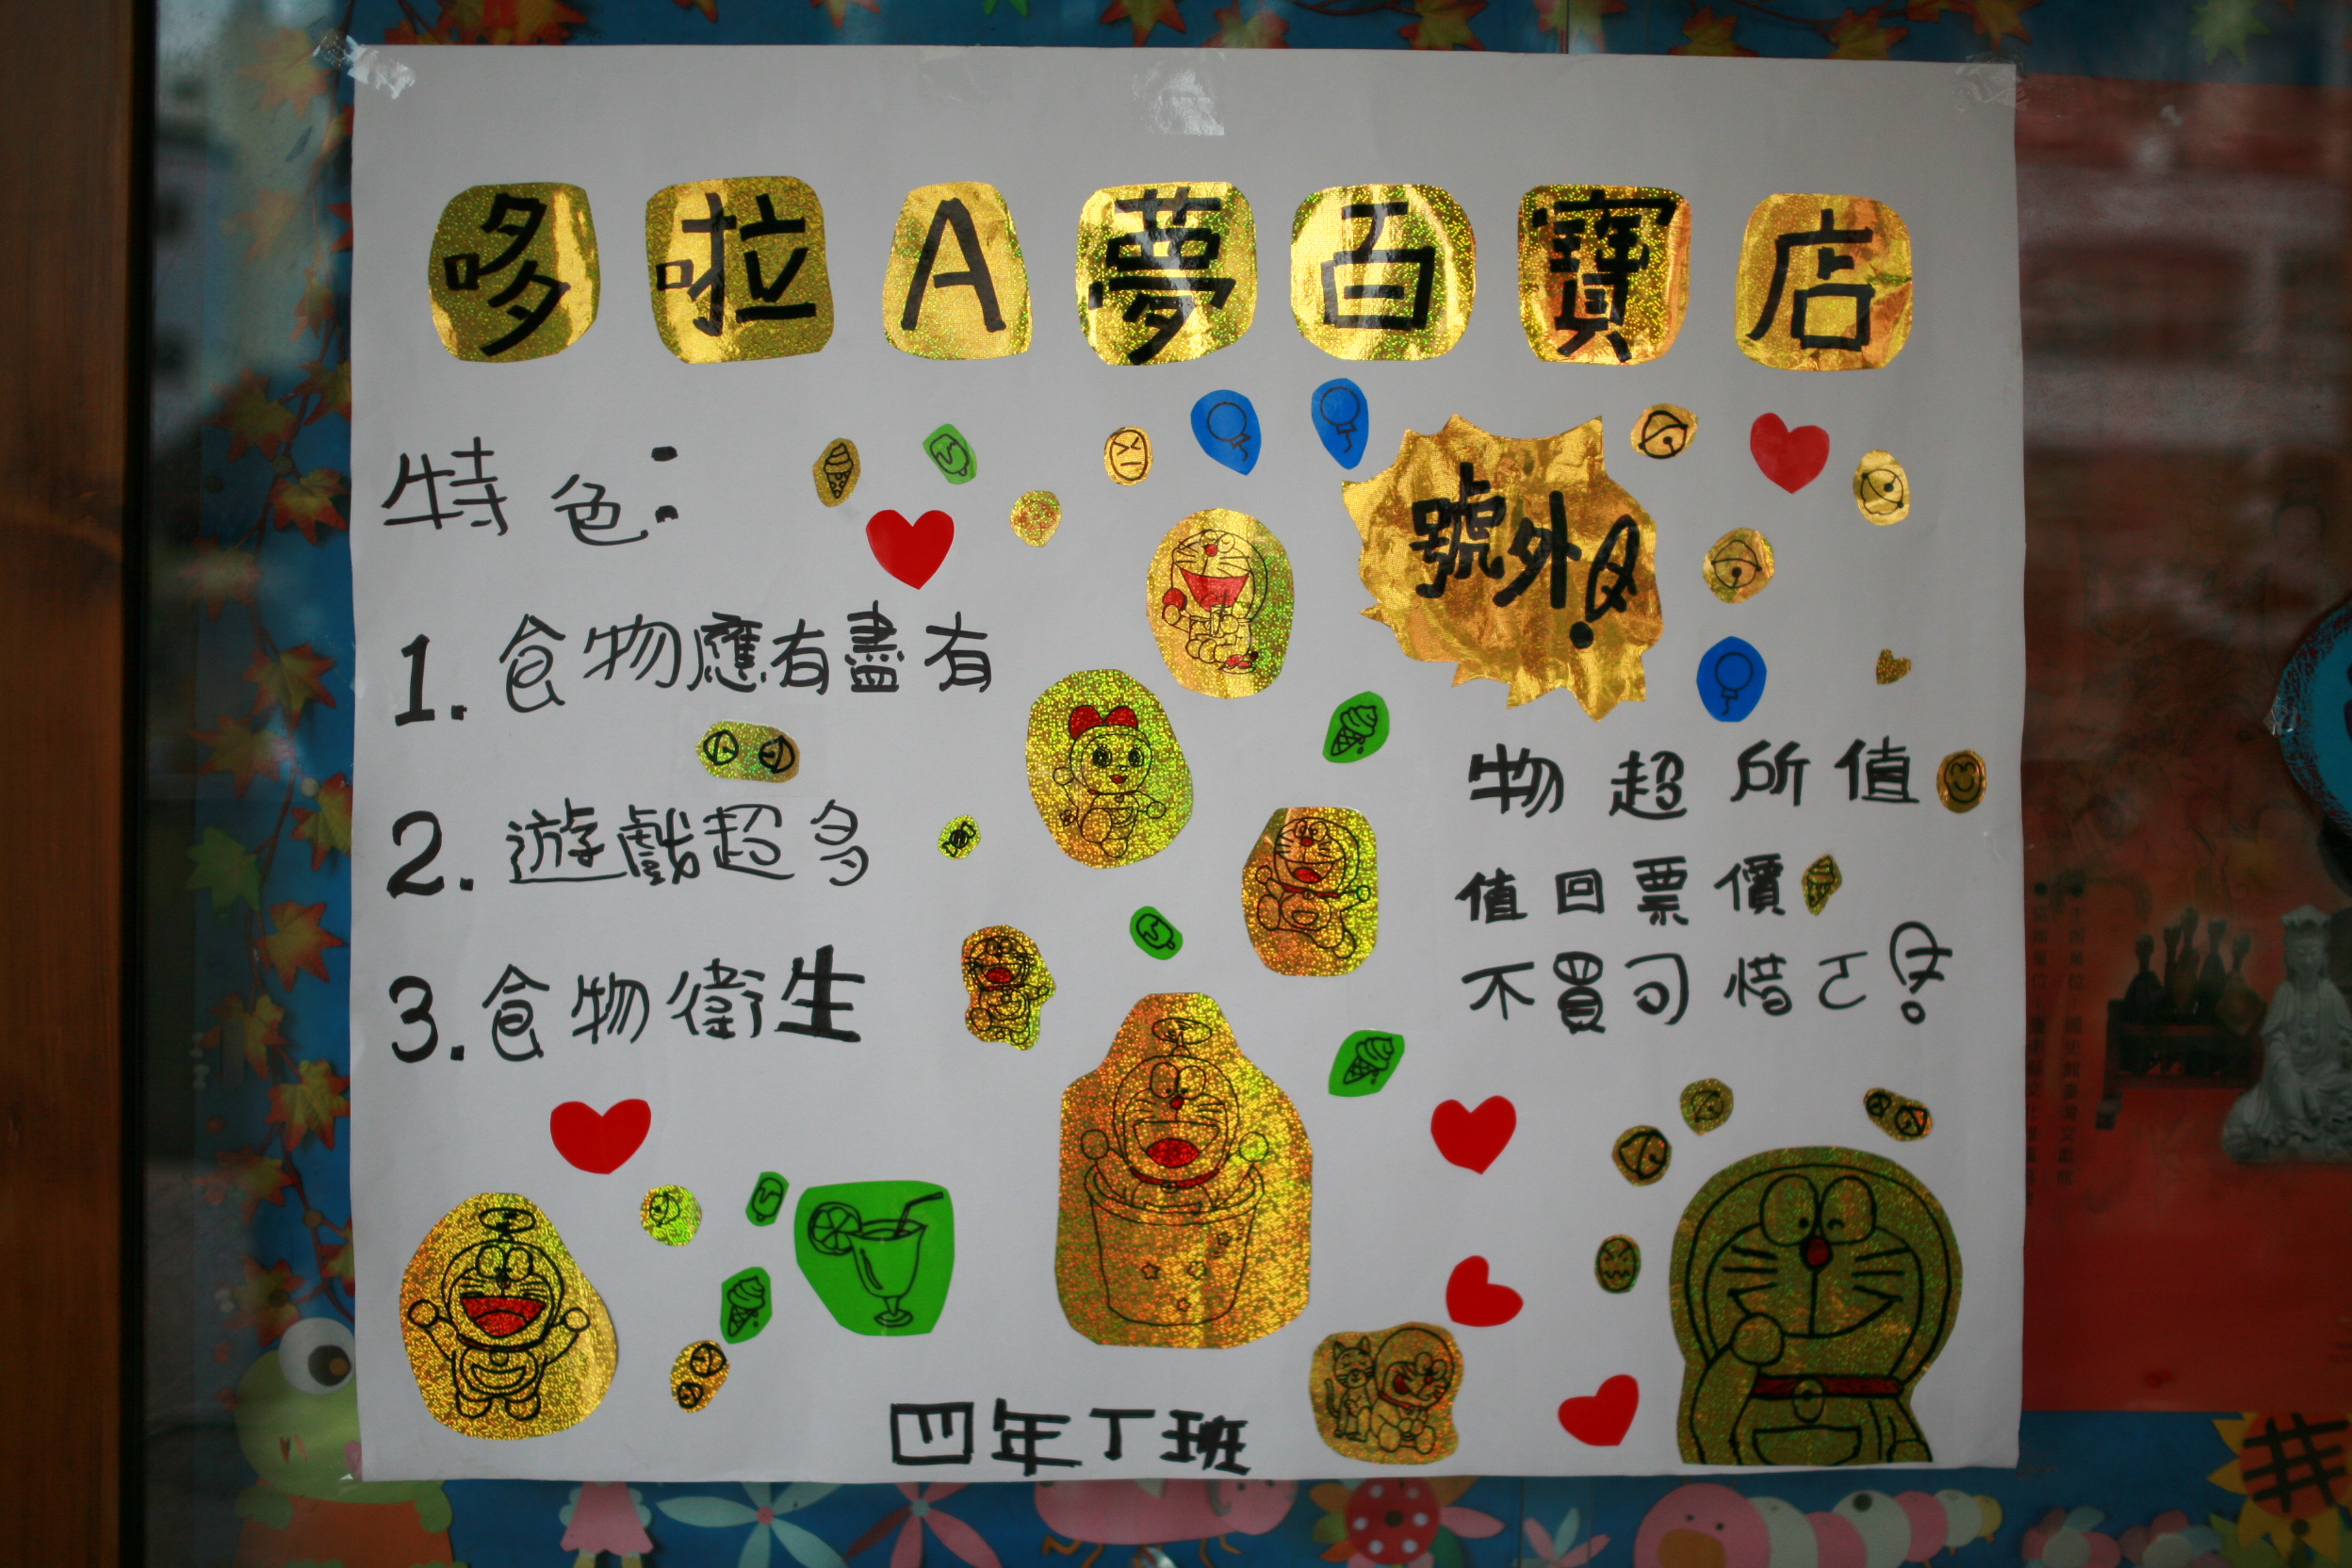 哆啦A夢百寶店
特色:
1. 食物應有盡有
2. 遊戲超多
3. 食物衛生
號外!
物超所值
值回票價
不買可惜ㄛ!
四年丁班